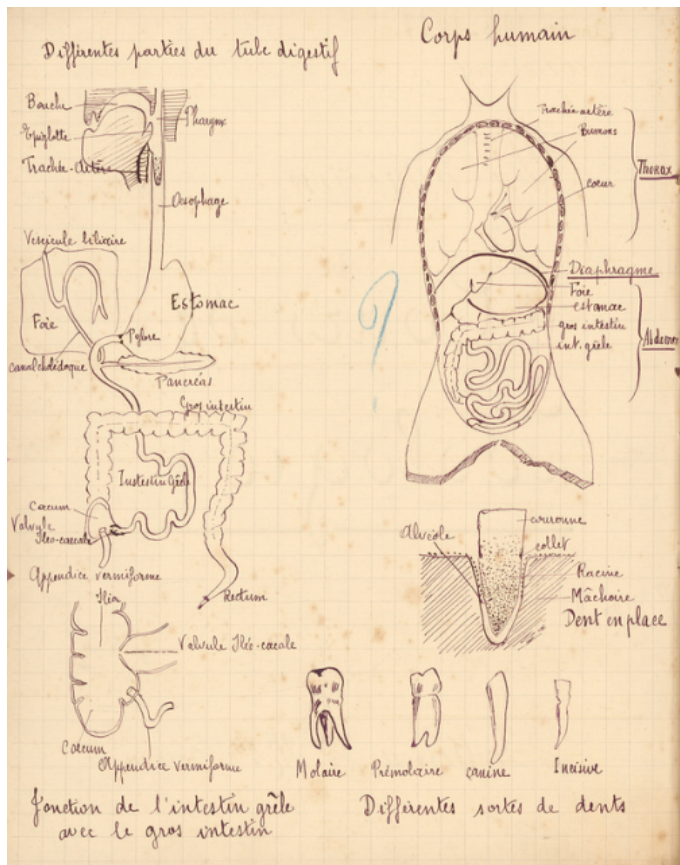 Différentes parties du tube digestif
Bouche
Epiglotte
Trachée-Artère
Pharynx
Oesophage
Vésicule biliaire
Foie
Estomac
Pylore
canal cholédoque
Pancréas
Gros intestin
Instestin Grêle
Coecum
Valvule
Iléo-coecale
Appendice vermiforme
Rectum
Valvule Iléo-cacale
Coecum
Appendice vermiforme
Jonction de l'intestin grêle
avec le gros intestin
Corps humain
Trachée-artère
coeur
Thorax
Diaphragme
Foie
estomac
gros intestin
int. grêle
Abdomen
Alvéole
couronne
collet
Racine
Mâchoire
Dent en place
Molaire
Prémolaire
canine
Incisive
Différentes sortes de dents